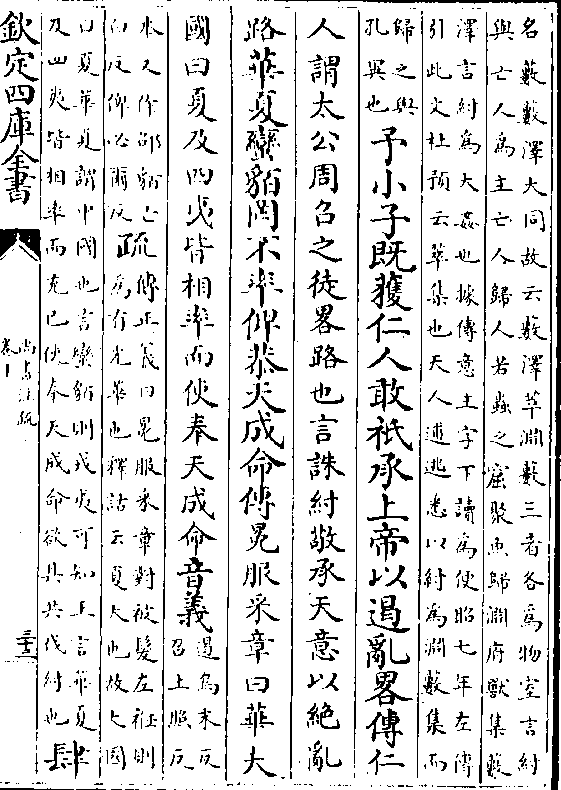 名藪藪澤大同故云藪澤萃淵藪三者各為物室言紂
與亡人為主亡人歸人若蟲之窟聚魚歸淵府獸集藪
澤言紂為大姦也據傳意主字下讀為便昭七年左傳
引此文杜預云萃集也天人逋逃悉以紂為淵藪集而
歸之與
孔異也
予小子既獲仁人敢祗承上帝以遏亂畧傳仁
人謂太公周召之徒畧路也言誅紂敬承天意以絶亂
路華夏蠻貊罔不率俾恭天成命傳冕服采章曰華大
國曰夏及四夷皆相率而使奉天成命音義
遏烏末反
召上照反
本又作邵貊亡
白反俾必爾反
疏
傳正義曰冕服采章對被髮左衽則
為有光華也釋詁云夏大也故大國
曰夏華夏謂中國也言蠻貊則戎夷可知王言華夏
及四夷皆相率而充已使奉天成命欲其共伐紂也
肆
欽定四庫全書
尚書注疏
卷十
三十二